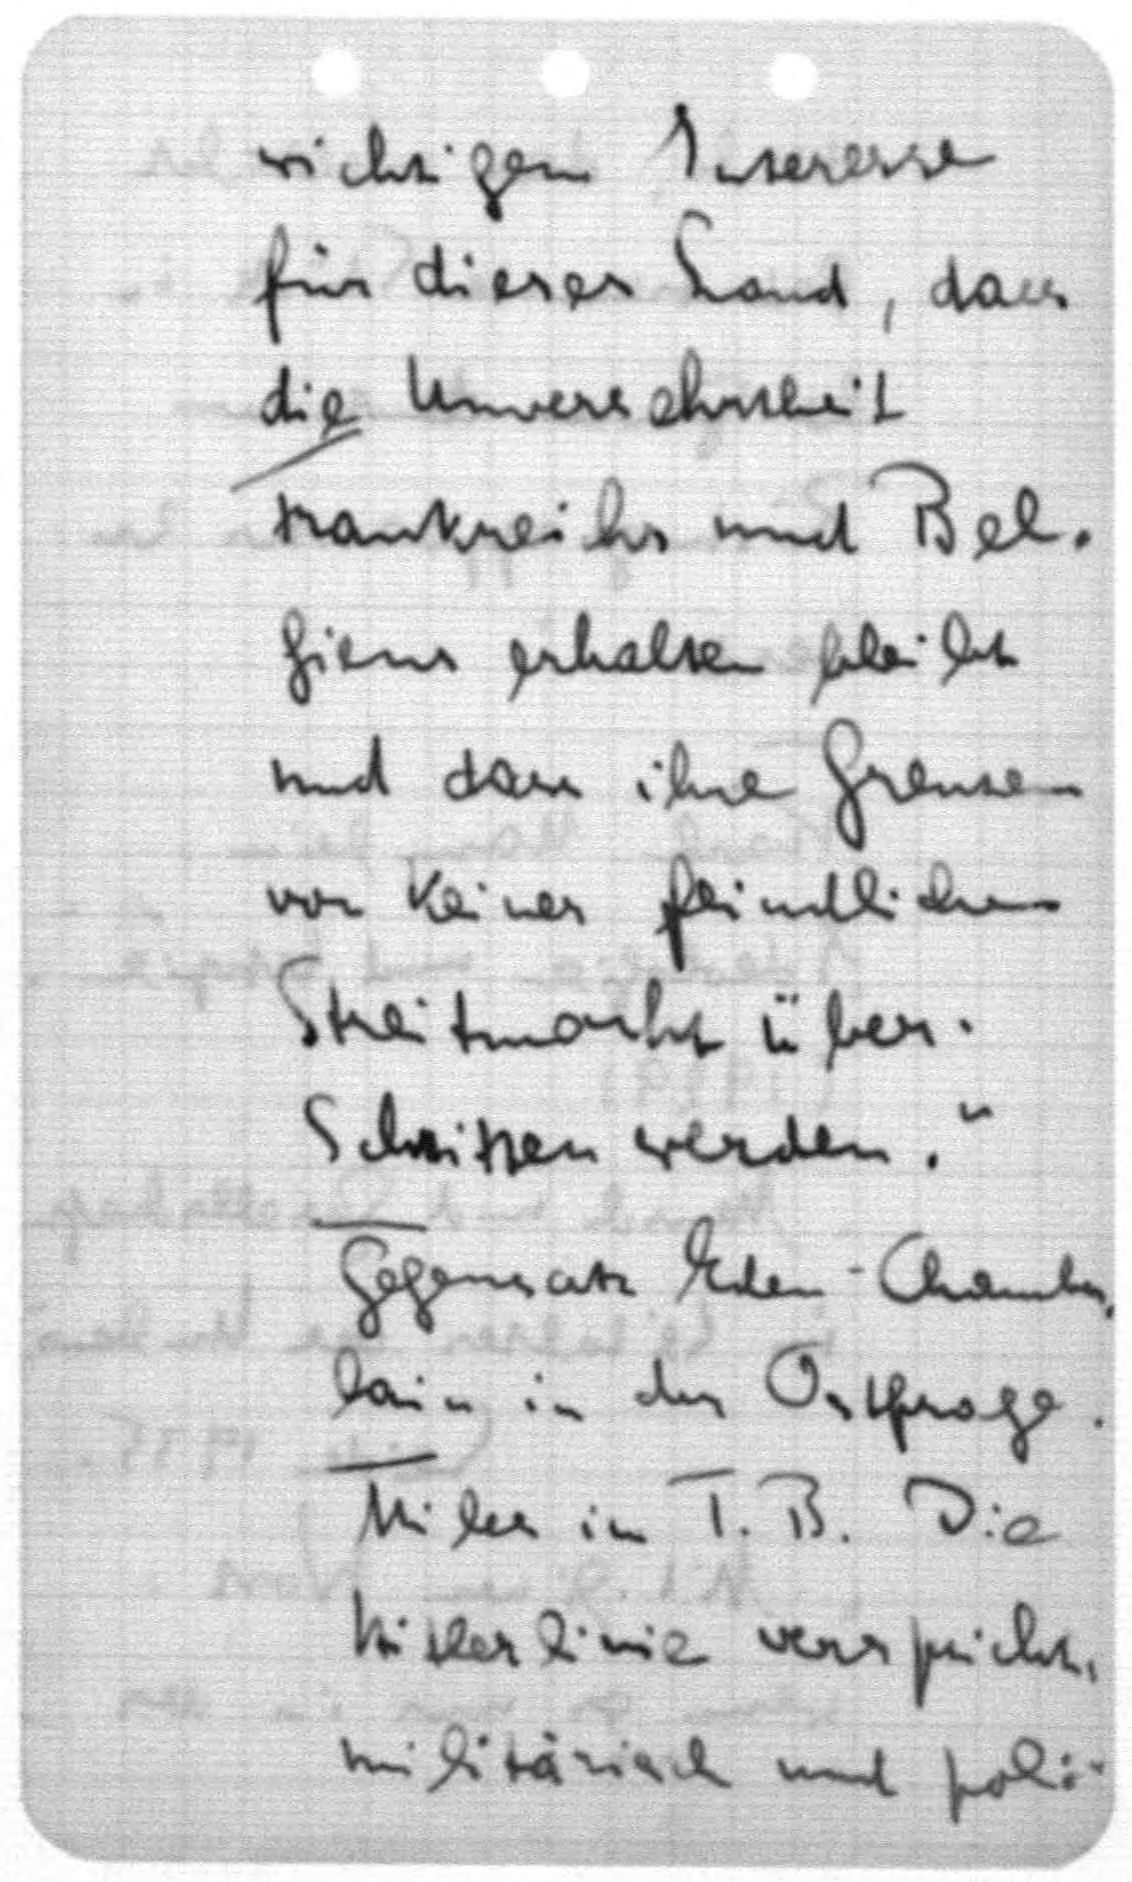 wichtigem Interesse
für dieses Land, dass
die Unversehrtheit
Frankreichs und Bel-
giens erhalten bleibt
und dass ihre Grenzen
von keiner feindlichen
Streitmacht über-
schritten werden."
Gegensatz Eden-Chamber-
lain in der Ostfrage.
in T. B. Die
Hitlerlinie verspricht,
militärisch und poli-